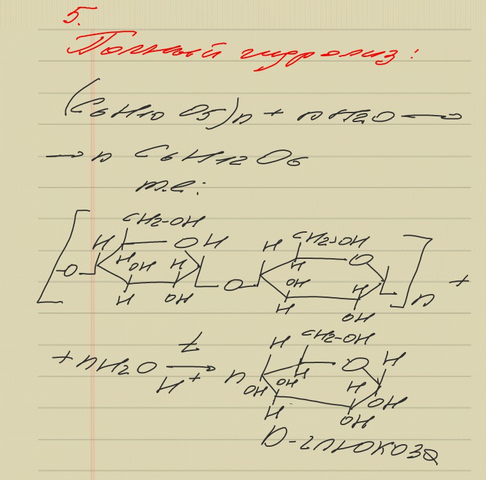 5.
Полный гидролиз:
(C6H10O5)n + nH2O →
→ n C6H12O6
т.е:
CH2-OH CH2-OH
H O H H O
H H
-O OH H O OH H n +
H OH H OH
CH2-OH
+ nH2O t H O H
H+ n H
OH OH H OH
H OH
D-глюкоза